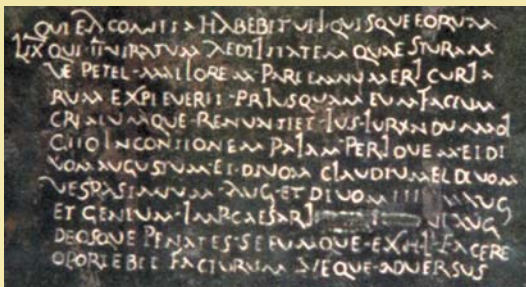 QUI EA COMITIA HABEBIT UTI QUISQUE EORUM
LIX QUI IIVIRATUM AEDILITATEM QUAESTURAM
VE PETET MAIOREM PARTEM NUMERI CURIA
RUM EXPLEVERIT PRIUSQUAM EUM FACTUM
CREATUMQUE RENUNTIET IUS IURANDUM ADI
GITO IN CONTIONEM PALAM PER IOVEM ET DI
VOM AUGUSTUM ET DIVOM CLAUDIUM ET DIVOM
VESPASIANUM AUG ET DIVOM TITUM AUG
ET GENIUM IMP CAESARI AUG
DEOSQUE PENATES SE EUMQUE EX H L FACERE
OPORTEBIT FACTURUM NEQUE ADVERSUS